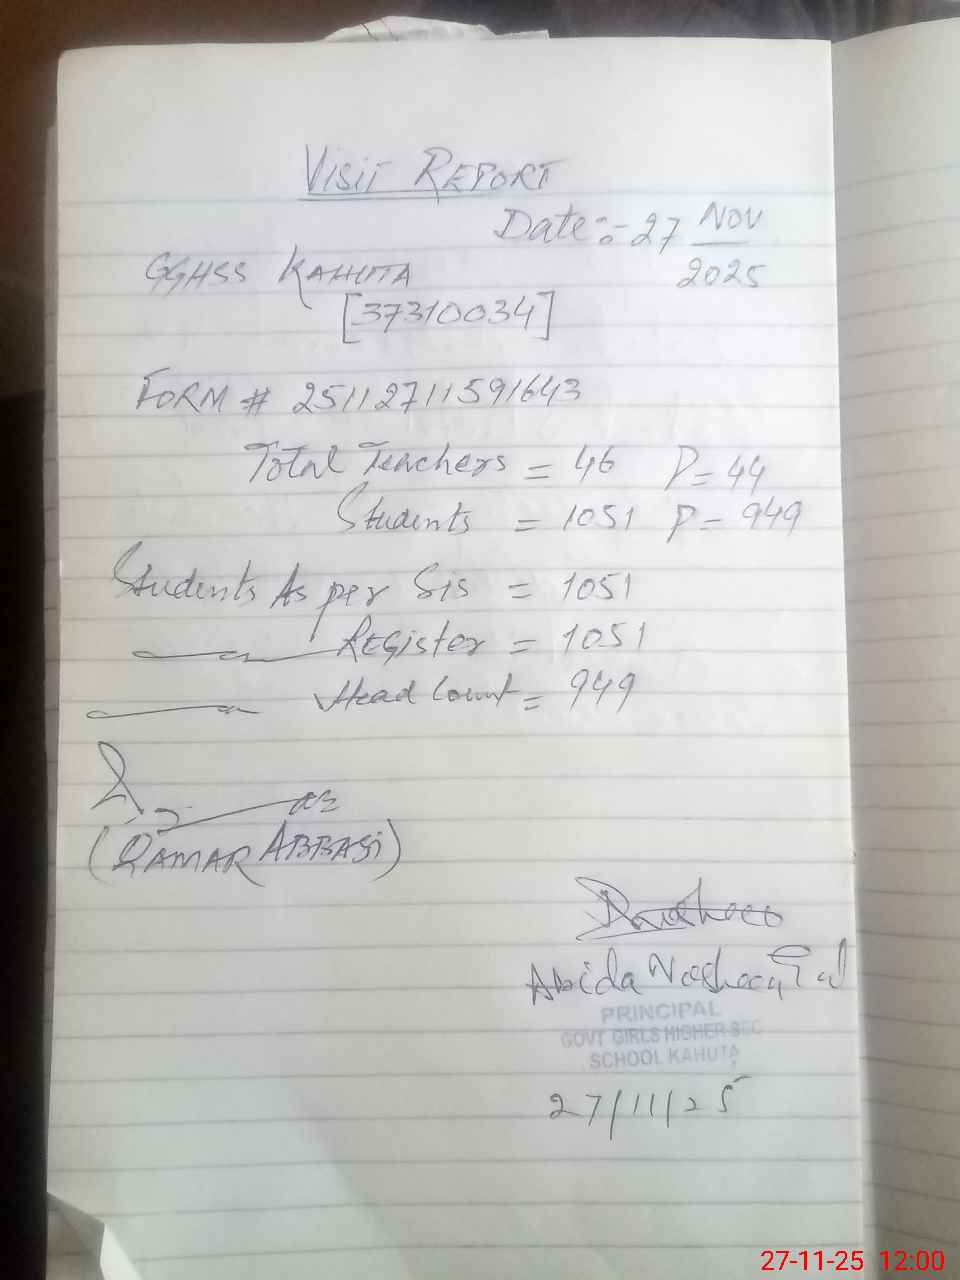 VISIT REPORT
Date:- 27 NOV
2025
GGHSS KAHUTA
[37310034]
FORM # 25112711591643
Total Teachers = 46 P= 44
Students = 1051 P= 949
Students As per Sis = 1051
Register = 1051
Head Count = 949
(QAMAR ABBASI)
Abida Nosheen
PRINCIPAL
GOVT GIRLS HIGHER SEC
SCHOOL KAHUTA
27/11/25
27-11-25 12:00